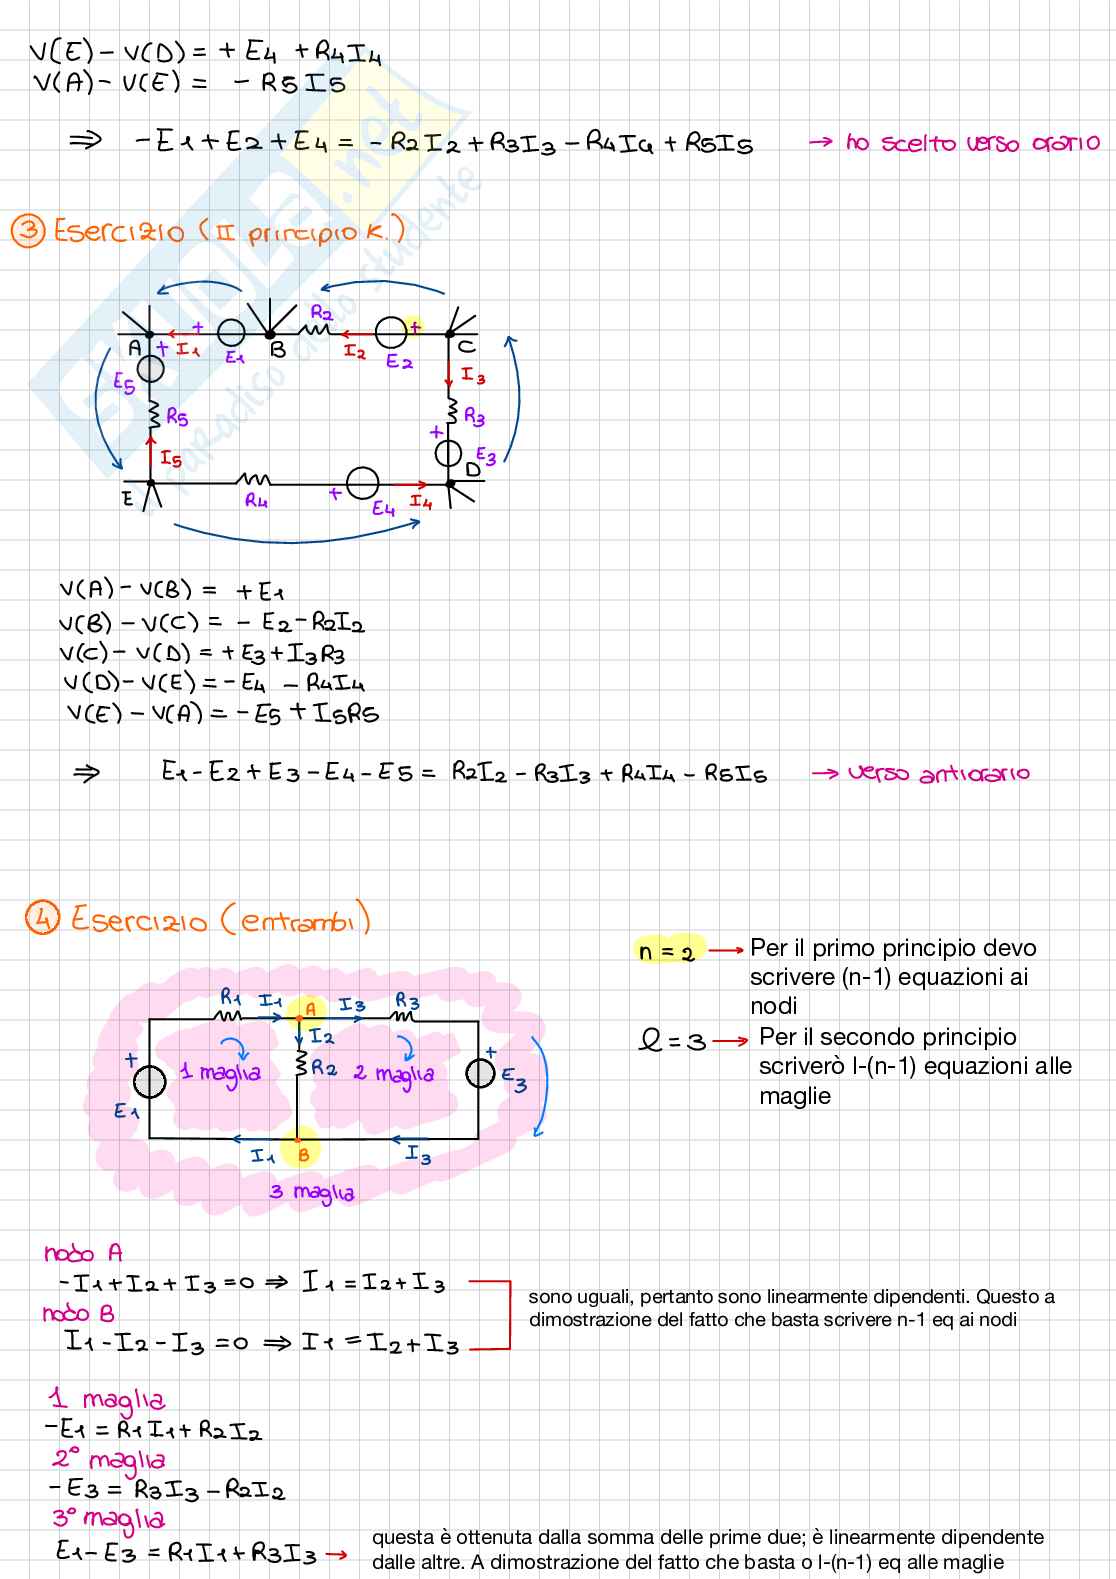 V(E) - V(D) = + E4 + R4I4
V(A) - V(E) = - R5I5
⇒ -E1 + E2 + E4 = -R2I2 + R3I3 - R4I4 + R5I5 → ho scelto verso orario
3 Esercizio (II principio K.)
A + I1 + E1 B R2 I2 E2 + C
E5 I3
R5 + R3
I5 E3
E R4 + E4 I4 D
V(A) - V(B) = + E1
V(B) - V(C) = - E2 - R2I2
V(C) - V(D) = + E3 + I3R3
V(D) - V(E) = - E4 - R4I4
V(E) - V(A) = - E5 + I5R5
⇒ E1 - E2 + E3 - E4 - E5 = R2I2 - R3I3 + R4I4 - R5I5 → verso antiorario
4 Esercizio (entrambi)
n = 2 → Per il primo principio devo
scrivere (n-1) equazioni ai
nodi
l = 3 → Per il secondo principio
scriverò l-(n-1) equazioni alle
maglie
R1 I1 A I3 R3
+ I2 +
1 maglia R2 2 maglia E3
E1
I1 B I3
3 maglia
nodo A
-I1 + I2 + I3 = 0 ⇒ I1 = I2 + I3
nodo B
I1 - I2 - I3 = 0 ⇒ I1 = I2 + I3
sono uguali, pertanto sono linearmente dipendenti. Questo a
dimostrazione del fatto che basta scrivere n-1 eq ai nodi
1 maglia
-E1 = R1I1 + R2I2
2° maglia
-E3 = R3I3 - R2I2
3° maglia
E1 - E3 = R1I1 + R3I3 →
questa è ottenuta dalla somma delle prime due; è linearmente dipendente
dalle altre. A dimostrazione del fatto che basta o l-(n-1) eq alle maglie
.net
paradiso dello studente